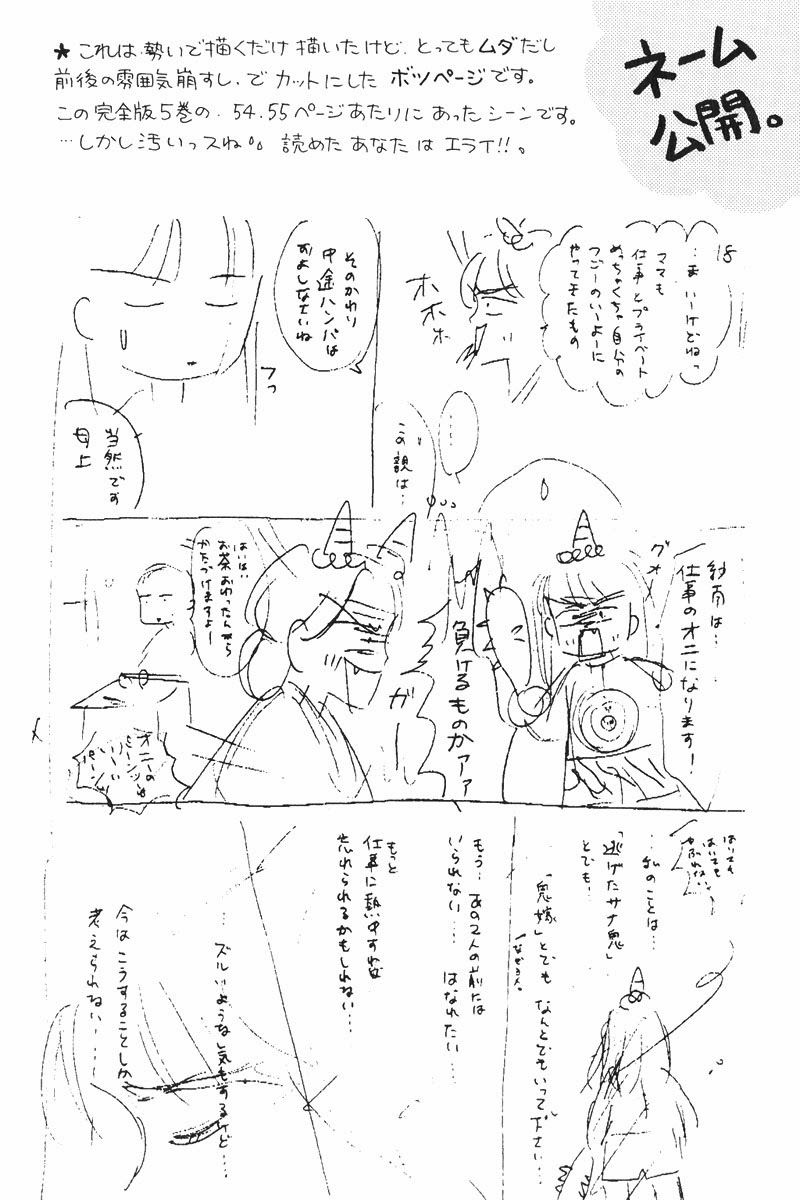 ネーム
公開。
★これは勢いで描くだけ描いたけど、とってもムダだし
前後の雰囲気崩すし、でカットにしたボツページです。
この完全版5巻の、54.55ページあたりにあったシーンです。
…しかし汚いっスね。読めたあなたはエライ!!。
18
…ま、いーけどねっ
ママも
仕事とプライベート
めっちゃくちゃ自分の
つごーのいいよーに
やってきたもの
ホホホ
そのかわり
中途ハンパは
およしなさいね
フっ
当然です
母上
……
この親は…
紗南は…
仕事のオニになります!
グオー
負けるものかァァ
ガ
はいはい
お茶おわったんなら
かたづけますよー
オニーの
パーンツは
いーい
パーンツ
はいても
はいても
やぶれない
…私のことは…
「逃げたサナ鬼」
とでも…
「鬼嫁」とでもなんとでもいって下さい…
もう…あの2人の前には
いられない…はなれたい…
もっと
仕事に熱中すれば
忘れられるかもしれない…
…ズルいような気もするけど…
今はこうすることしか
考えられない…